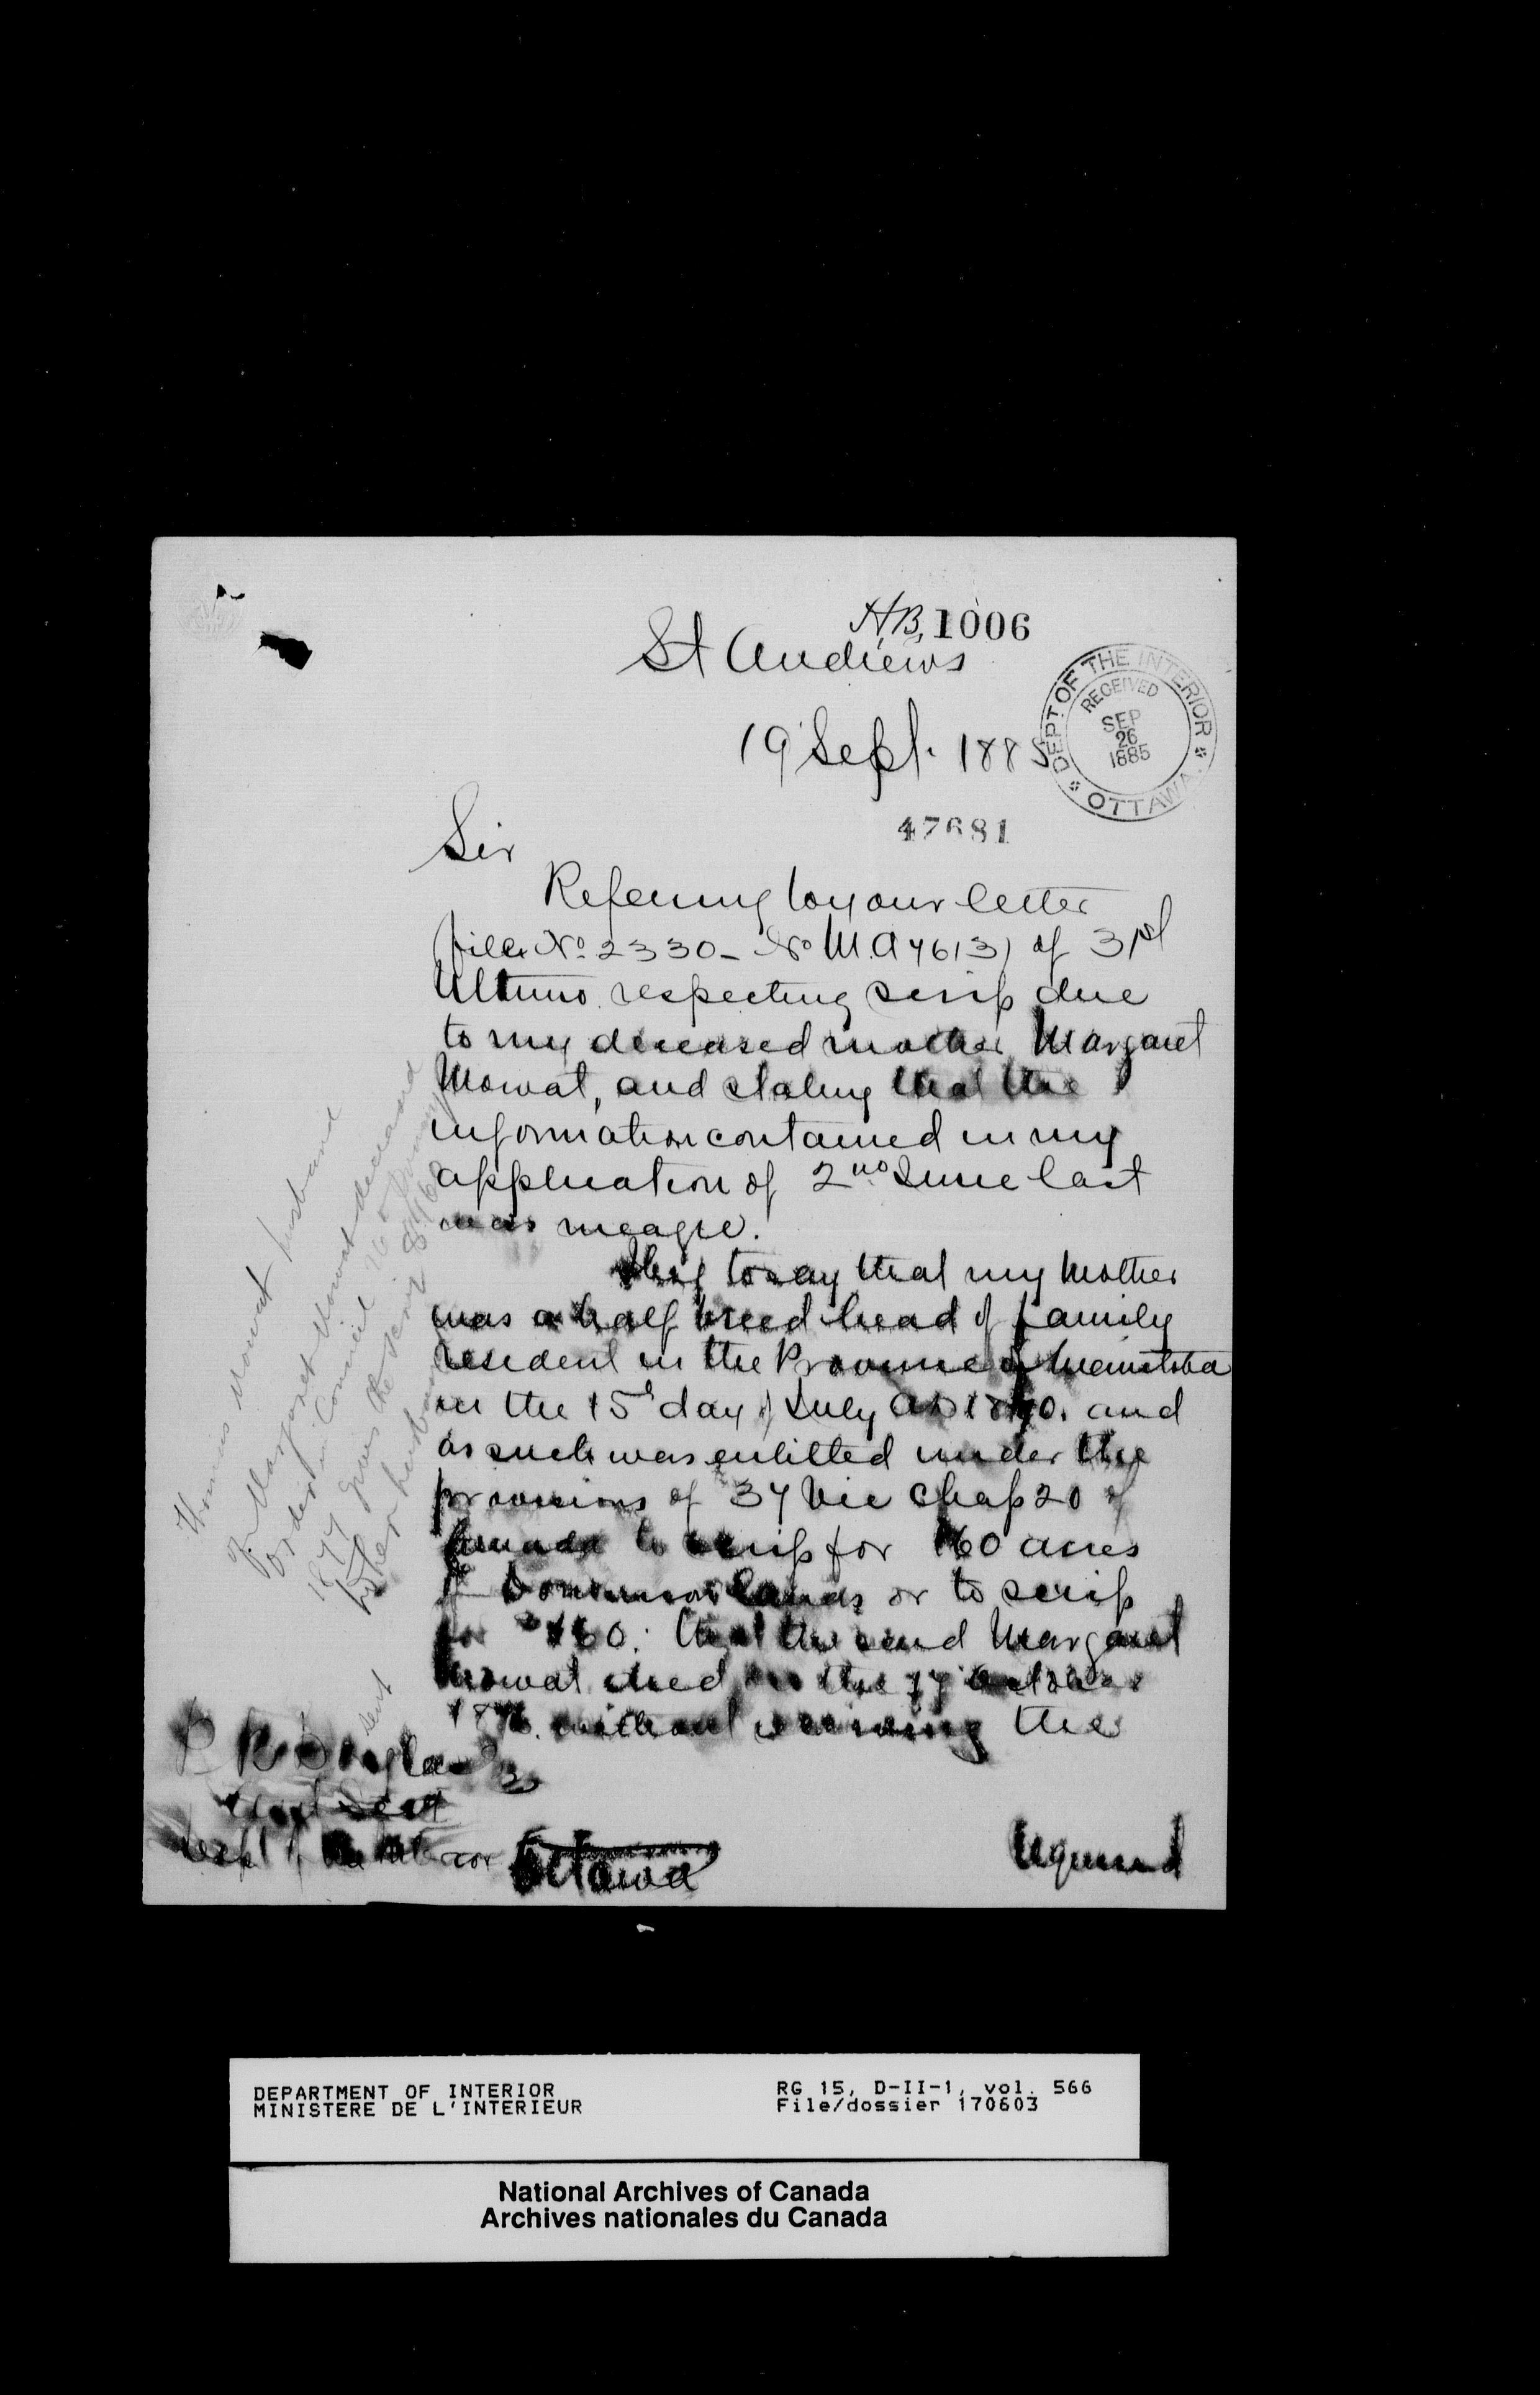 H,B, 1006
St Andrews
DEPT OF THE INTERIOR
RECEIVED
SEP
26
1885
OTTAWA
19 Sept. 1885
47681
Sir
Referring to your letter
file No 2330 - No M.A 7613) of 31st
Ultimo respecting scrip due
to my deceased mother Margaret
Mowat, and stating that the
information contained in my
application of 2nd June last
was meagre.
I beg to say that my Mother
was a half breed head of family
resident in the Province of Manitoba
on the 15th day of July AD 1870. and
as such was entitled under the
provisions of 37 Vic Chap 20 of
Canada to scrip for 160 acres
of Dominion lands or to scrip
for $160. that the said Margaret
Mowat died on the 17 October
without receiving the
Thomas Mowat husband
of Margaret Mowat deceased
Order in Council
gives the scrip
to her husband
sent
Dept of the Interior Ottawa
DEPARTMENT OF INTERIOR
MINISTERE DE L'INTERIEUR
RG 15, D-II-1, vol. 566
File/dossier 170603
National Archives of Canada
Archives nationales du Canada